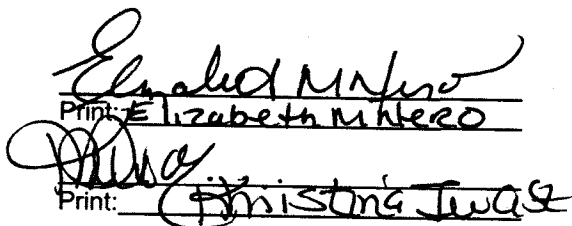 Elizabeth M Nero
Print: Elizabeth M Nero
Print: Christina Iwasz